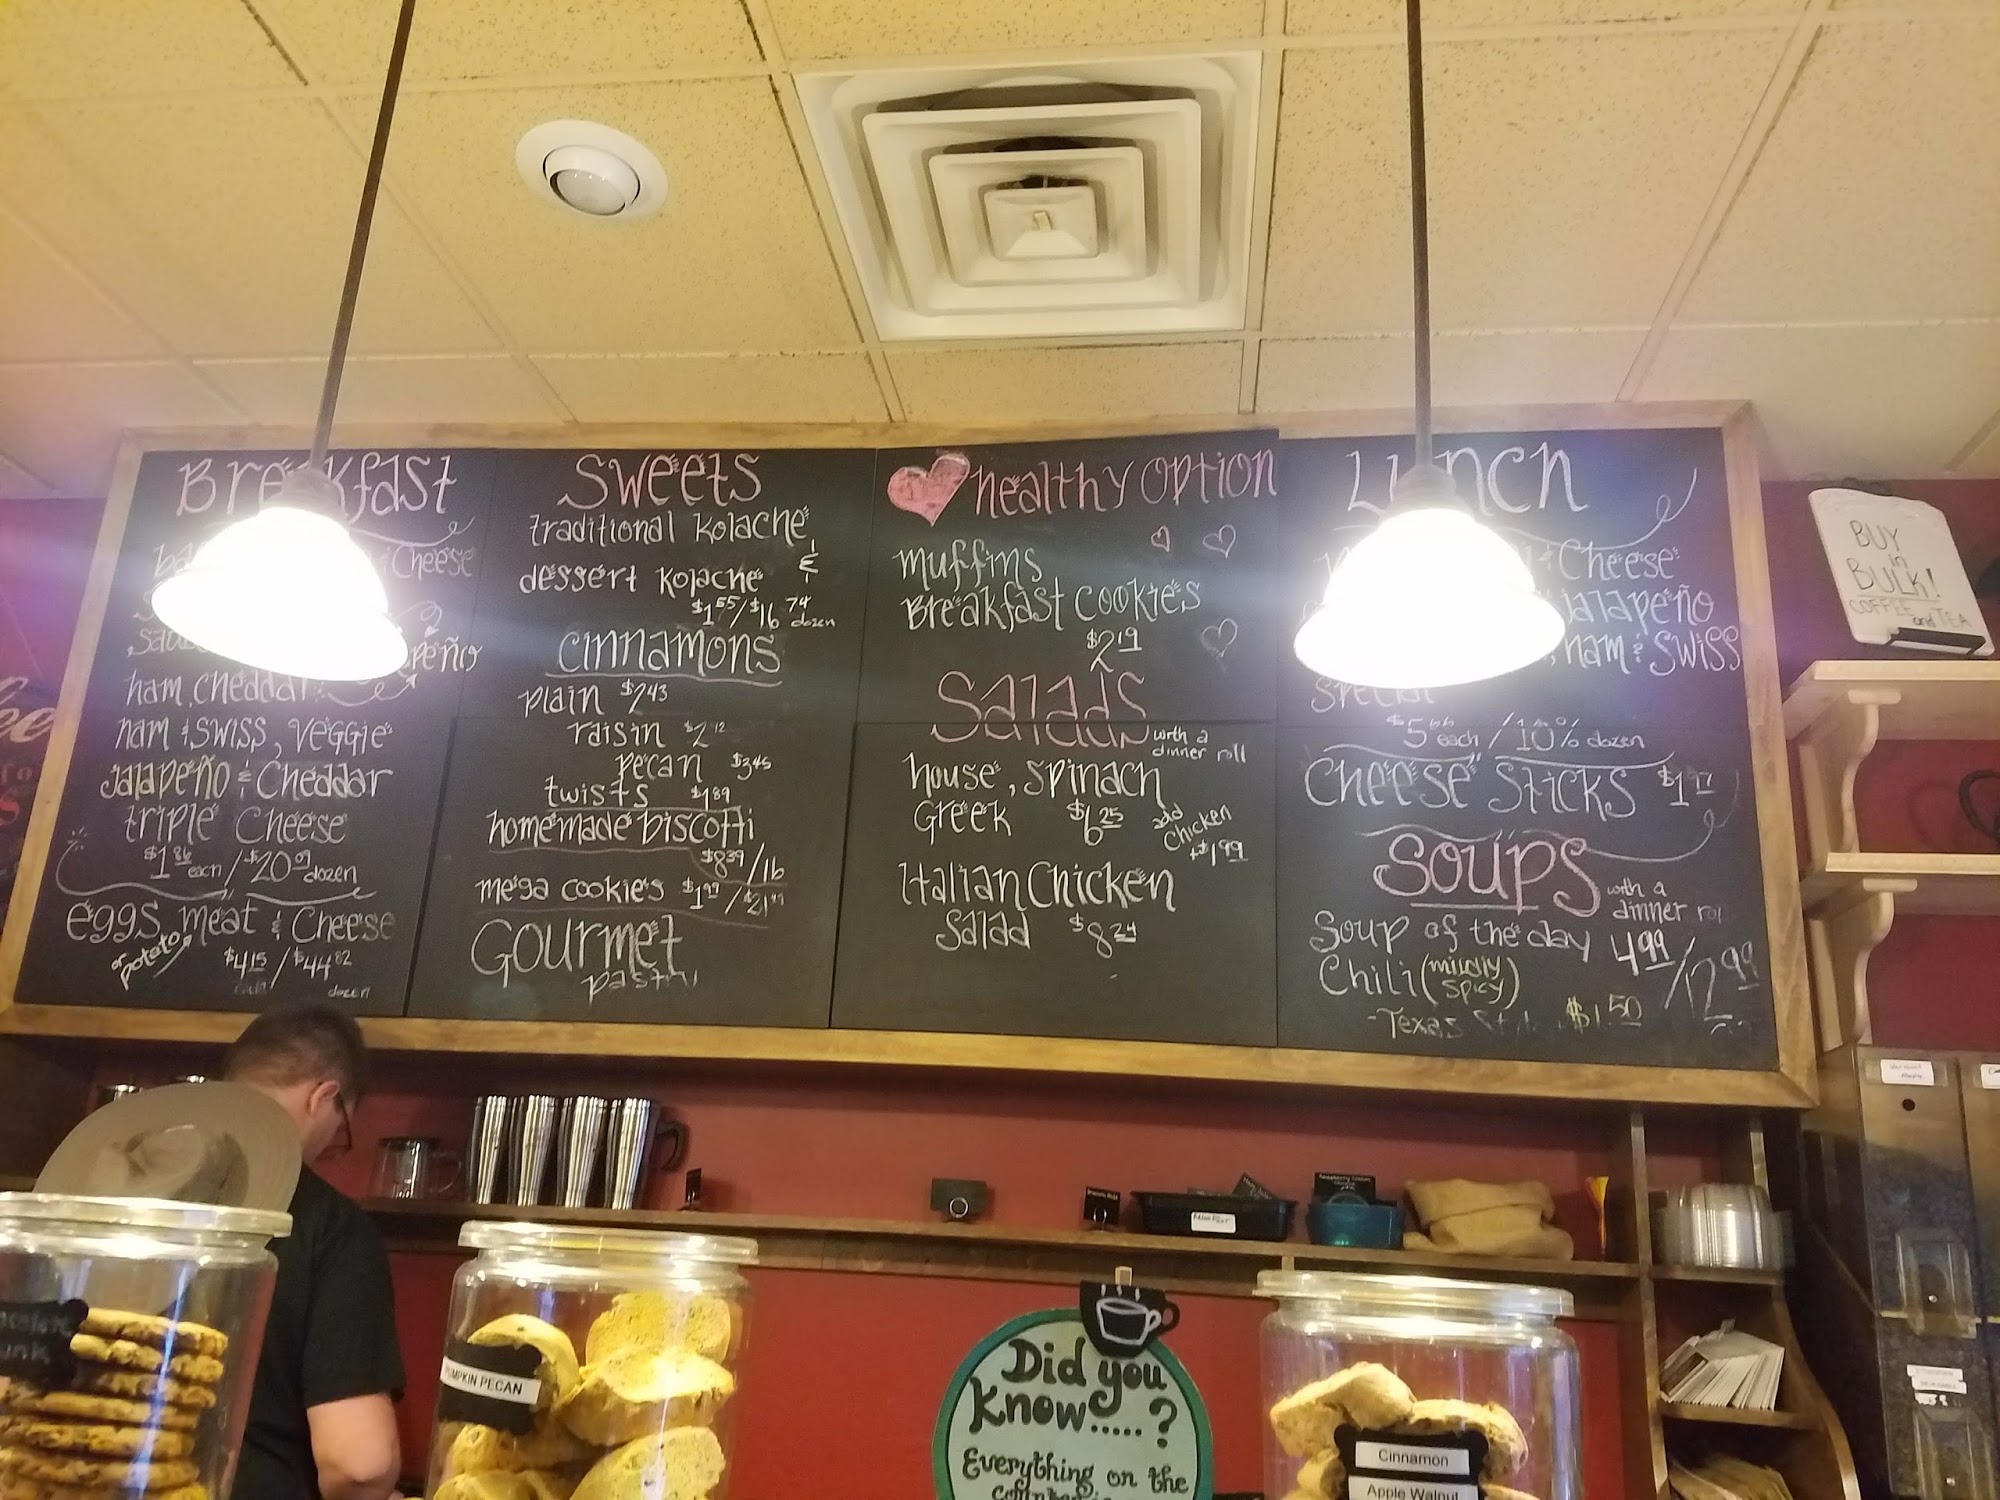 Breakfast
& Cheese
ham, cheddar
ham & swiss, veggie
jalapeño & Cheddar
triple Cheese
$1.86 each / $20.09 dozen
eggs, meat & Cheese
or potato
$4.15 / $44.82
dozen
Sweets
traditional kolache
&
dessert kolache
$1.55/$16.74 dozen
cinnamons
plain $2.43
raisin $2.12
pecan $3.45
twists $1.89
homemade biscotti
$8.39/lb
mega cookies $1.99/$21.49
Gourmet
pastry
healthy option
muffins
Breakfast cookies
$2.19
Salads
with a
dinner roll
house, spinach
Greek $6.25
add
chicken
+$1.99
Italian Chicken
Salad $8.24
Lunch
& Cheese
jalapeño
ham & swiss
special
$5 each / 10% dozen
Cheese Sticks
Soups
with a
dinner roll
Soup of the day 4.99/12.99
Chili (mildly
spicy)
-Texas Style $1.50
BUY
in
BULK!
COFFEE and TEA
PUMPKIN PECAN
Did you
Know.....?
Everything on the
Cinnamon
Apple Walnut